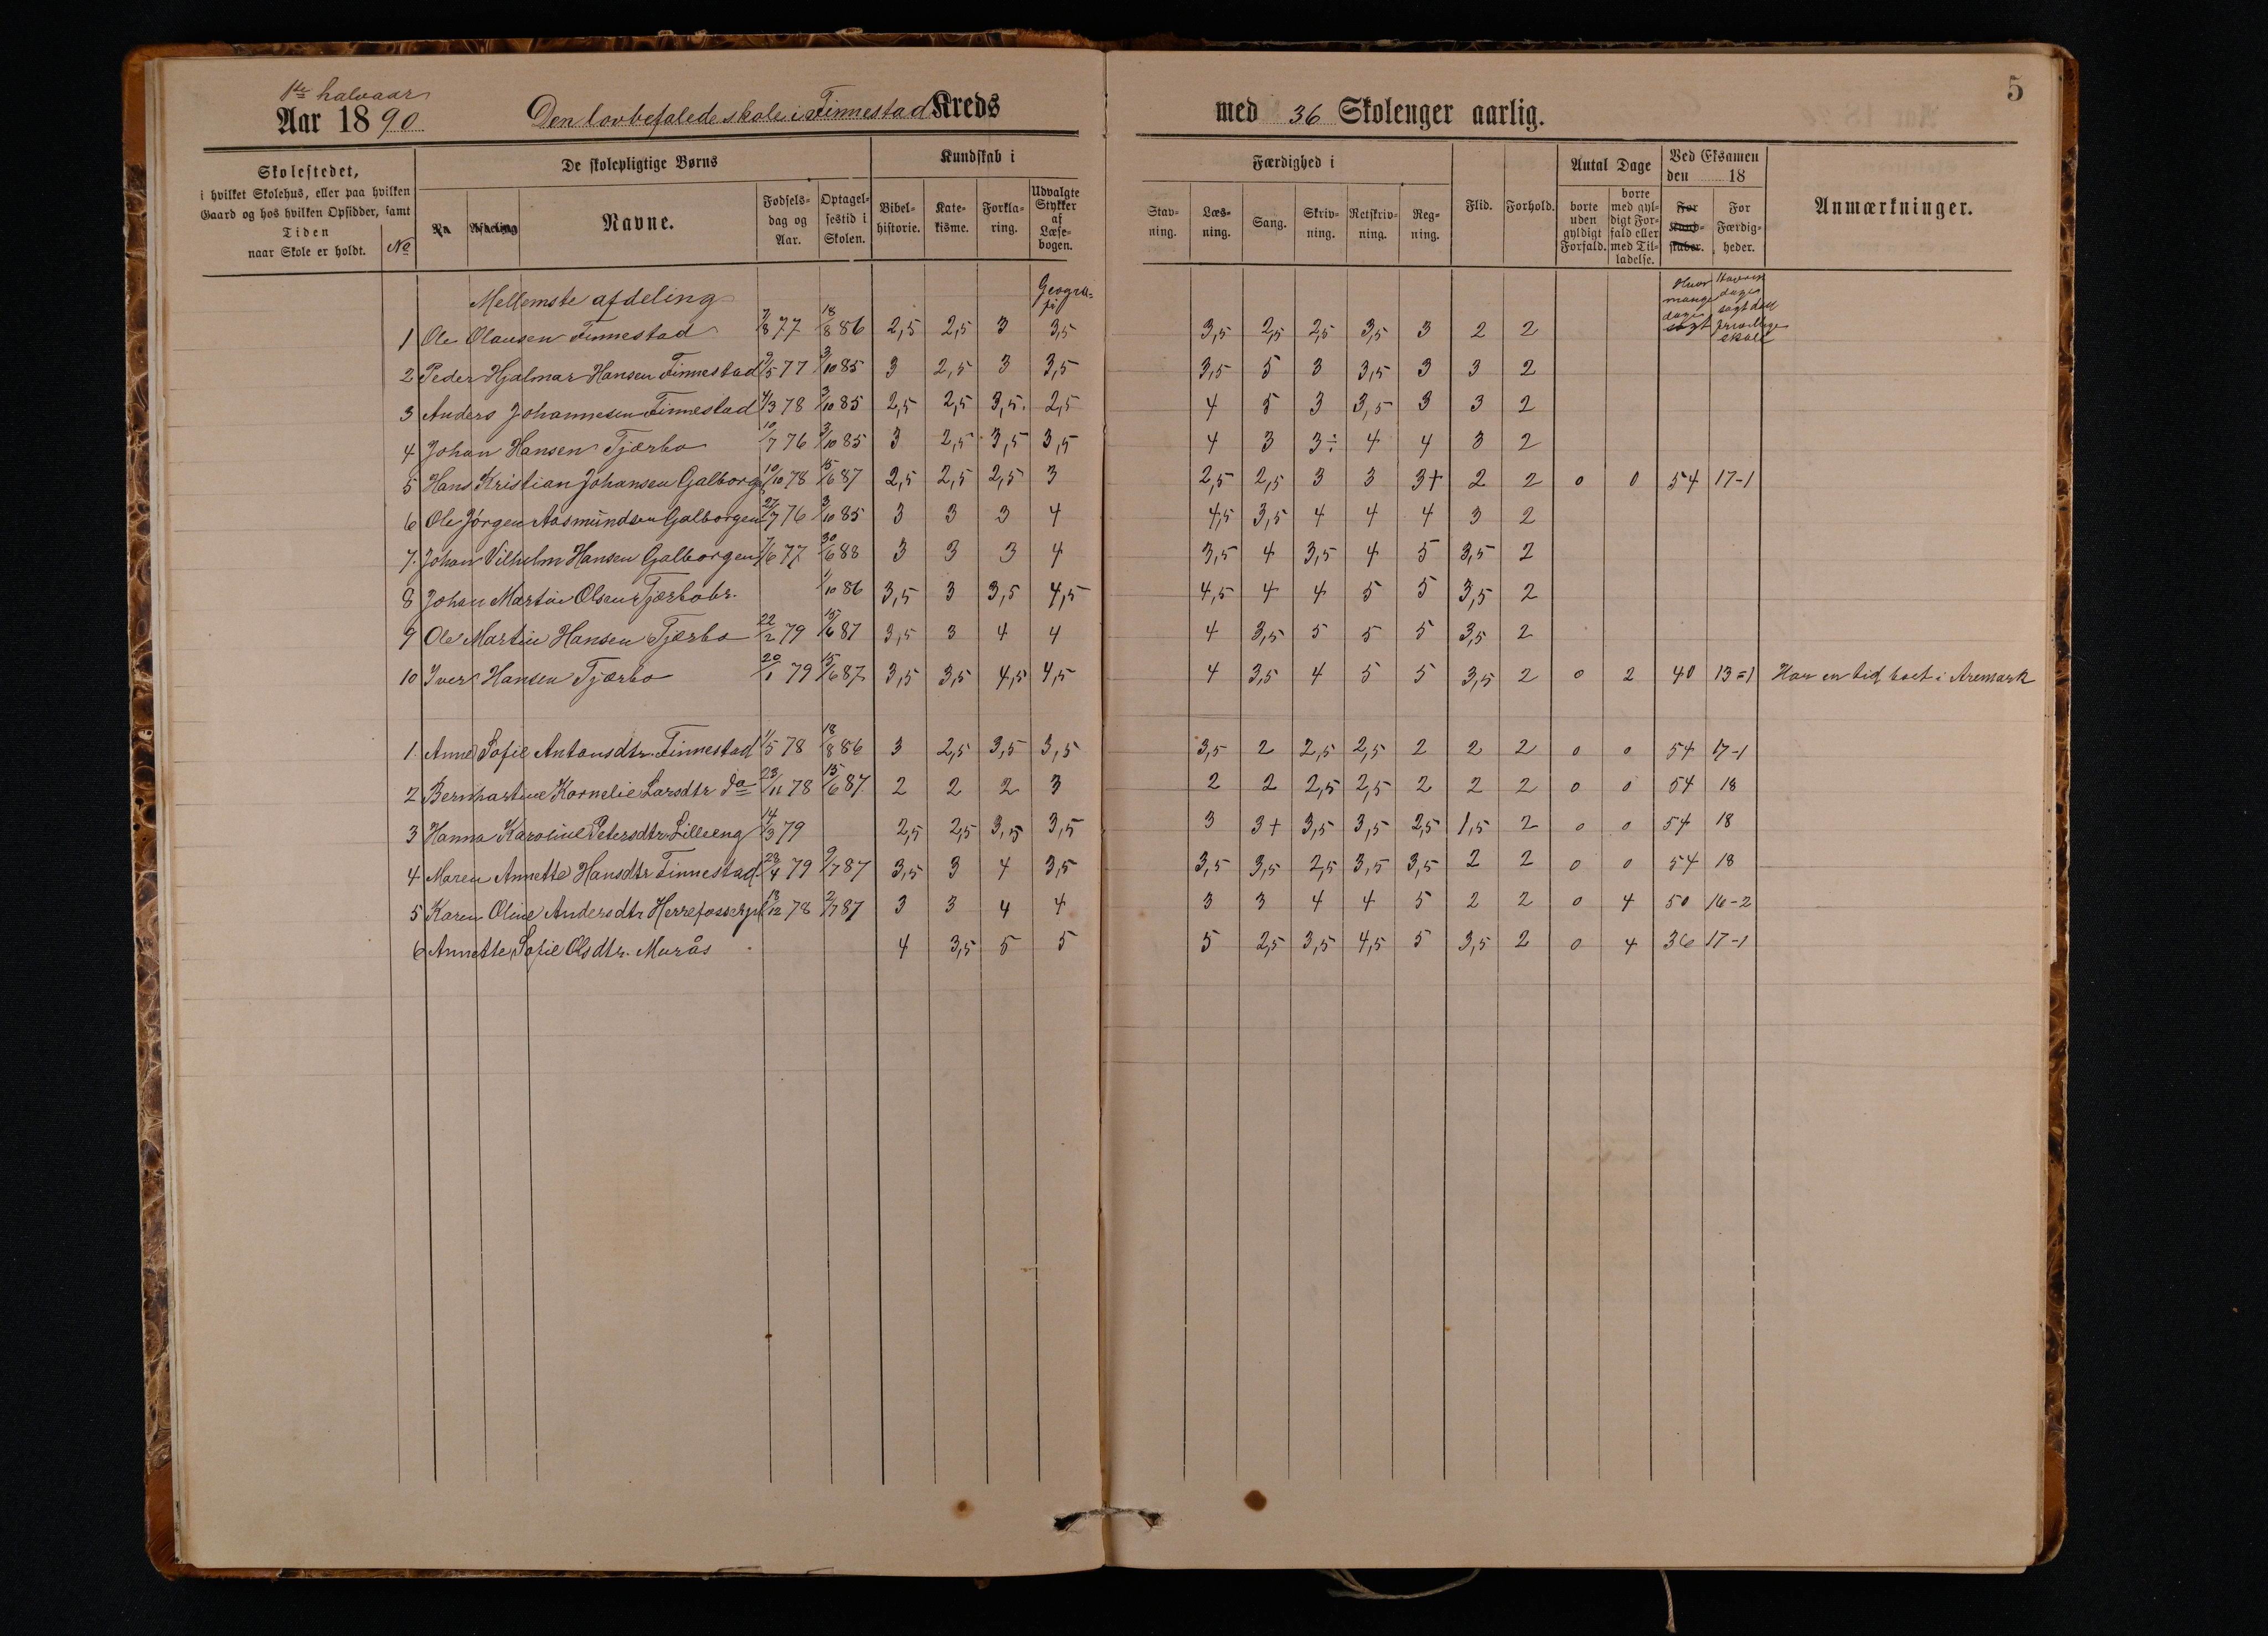 1ste halvaar
Aar 1890 Den lovbefalede skole i Finnestad Kreds med 36 Skolenger aarlig. 5
Skolestedet, i hvilket Skolehus, eller paa hvilken Gaard og hos hvilken Opsidder, samt Tiden naar Skole er holdt. No
De skolepligtige Børns
Navne. Fødsels-dag og Aar. Optagel-sestid i Skolen.
Kundskab i
Bibel-historie. Kate-kisme. Forkla-ring. Udvalgte Stykker af Læse-bogen.
Færdighed i
Stav-ning. Læs-ning. Sang. Skriv-ning. Retskriv-ning. Reg-ning. Flid. Forhold.
Antal Dage
borte uden gyldigt Forfald. borte med gyl-digt For-fald eller med Til-ladelse.
Ved Eksamen den 18
For Kund-skaber. For Færdig-heder.
Anmærkninger.
Mellemste afdeling Geogra-fi Hvor mange dage søgt
dage søgt den frivillige skole
1 Ole Olausen Finnestad 7/8 77 18/8 86 2,5 2,5 3 3,5 3,5 2,5 2,5 3,5 3 2 2
2 Peder Hjalmar Hansen Finnestad 9/5 77 3/10 85 3 2,5 3 3,5 3,5 5 3 3,5 3 3 2
3 Anders Johannesen Finnestad 4/3 78 3/10 85 2,5 2,5 3,5. 2,5 4 5 3 3,5 3 3 2
4 Johan Hansen Tjærbo 10/7 76 3/10 85 3 2,5 3,5 3,5 4 3 3÷ 4 4 3 2
5 Hans Kristian Johansen Galborgen 10/10 78 15/6 87 2,5 2,5 2,5 3 2,5 2,5 3 3 3+ 2 2 0 0 54 17-1
6 Ole Jörgen Aasmundsen Galborgen 27/7 76 3/10 85 3 3 3 4 4,5 3,5 4 4 4 3 2
7. Johan Vilhelm Hansen Galborgen 7/6 77 30/6 88 3 3 3 4 3,5 4 3,5 4 5 3,5 2
8 Johan Martin Olsen Tjærbobr. 1/10 86 3,5 3 3,5 4,5 4,5 4 4 5 5 3,5 2
9 Ole Martin Hansen Tjærbo 22/2 79 15/6 87 3,5 3 4 4 4 3,5 5 5 5 3,5 2
10 Iver Hansen Tjærbo 20/1 79 15/6 87 3,5 3,5 4,5 4,5 4 3,5 4 5 5 3,5 2 0 2 40 13=1 Har en tid boet i Aremark
1. Anne Sofie Antonsdtr. Finnestad 1/5 78 18/8 86 3 2,5 3,5 3,5 3,5 2 2,5 2,5 2 2 2 0 0 54 17-1
2 Bernhartine Kornelie Larsdtr do 23/11 78 15/6 87 2 2 2 3 2 2 2,5 2,5 2 2 2 0 0 54 18
3 Hanna Karoline Petersdtr. Lilleeng 14/3 79 2,5 2,5 3,5 3,5 3 3+ 3,5 3,5 2,5 1,5 2 0 0 54 18
4 Maren Annette Hansdtr Finnestad 23/4 79 9/7 87 3,5 3 4 3,5 3,5 3,5 2,5 3,5 3,5 2 2 0 0 54 18
5 Karen Oline Andersdtr 13/12 78 2/7 87 3 3 4 4 3 3 4 4 5 2 2 0 4 50 16-2
6 Annette Sofie Olsdtr. Murås 4 3,5 5 5 5 2,5 3,5 4,5 5 3,5 2 0 4 36 17-1